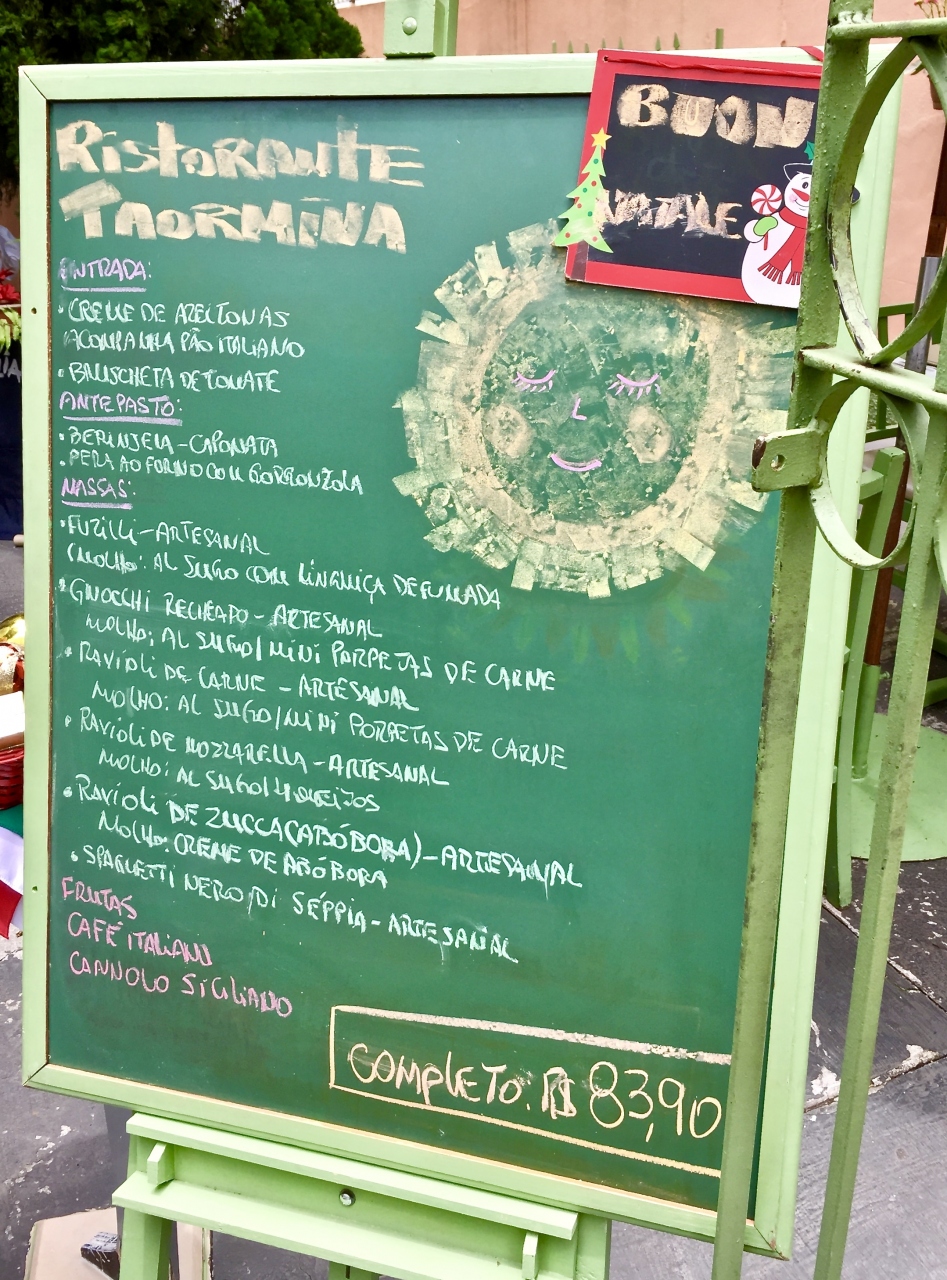 RISTORANTE
TAORMINA
BUON
NATALE
ENTRADA:
• CREME DE AZEITONAS
ACOMPANHA PÃO ITALIANO
• BRUSCHETA DE TOMATE
ANTEPASTO:
• BERINJELA - CAPONATA
• PERA AO FORNO COM GORGONZOLA
MASSAS:
• FUZILLI - ARTESANAL
(MOLHO: AL SUGO COM LINGUIÇA DEFUMADA
• GNOCCHI RECHEADO - ARTESANAL
MOLHO: AL SUGO/MINI PORPETAS DE CARNE
• RAVIOLI DE CARNE - ARTESANAL
MOLHO: AL SUGO/MINI PORPETAS DE CARNE
• RAVIOLI DE MOZZARELLA - ARTESANAL
MOLHO: AL SUGO/4 QUEIJOS
• RAVIOLI DE ZUCCA (ABÓBORA) - ARTESANAL
MOLHO: CREME DE ABÓBORA
• SPAGUETTI NERO/DI SÉPPIA - ARTESANAL
FRUTAS
CAFÉ ITALIANO
CANNOLO SICILIANO
COMPLETO: R$ 83,90